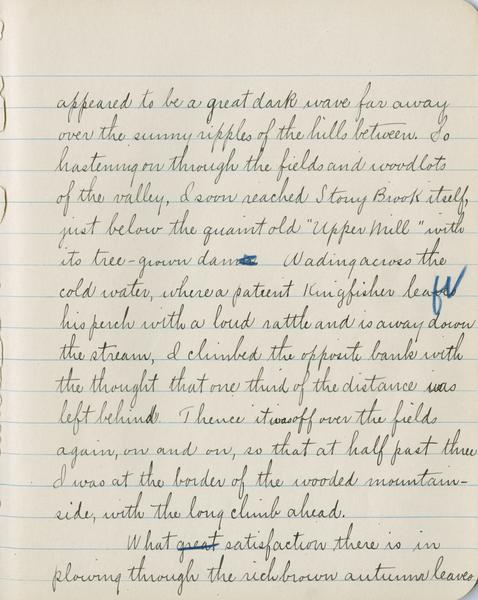 appeared to be a great dark wave far away
over the sunny ripples of the hills between. So
hastening on through the fields and woodlots
of the valley, I soon reached Stony Brook itself,
just below the quaint old "Upper Mill" with
its tree-grown dam Wading across the
cold water, where a patient Kingfisher lea
his perch with a loud rattle and is away down
the stream, I climbed the opposite bank with
the thought that one third of the distance was
left behind. Thence it was off over the fields
again, on and on, so that at half past three
I was at the border of the wooded mountain-
side, with the long climb ahead.
What great satisfaction there is in
plowing through the rich brown autumn leaves